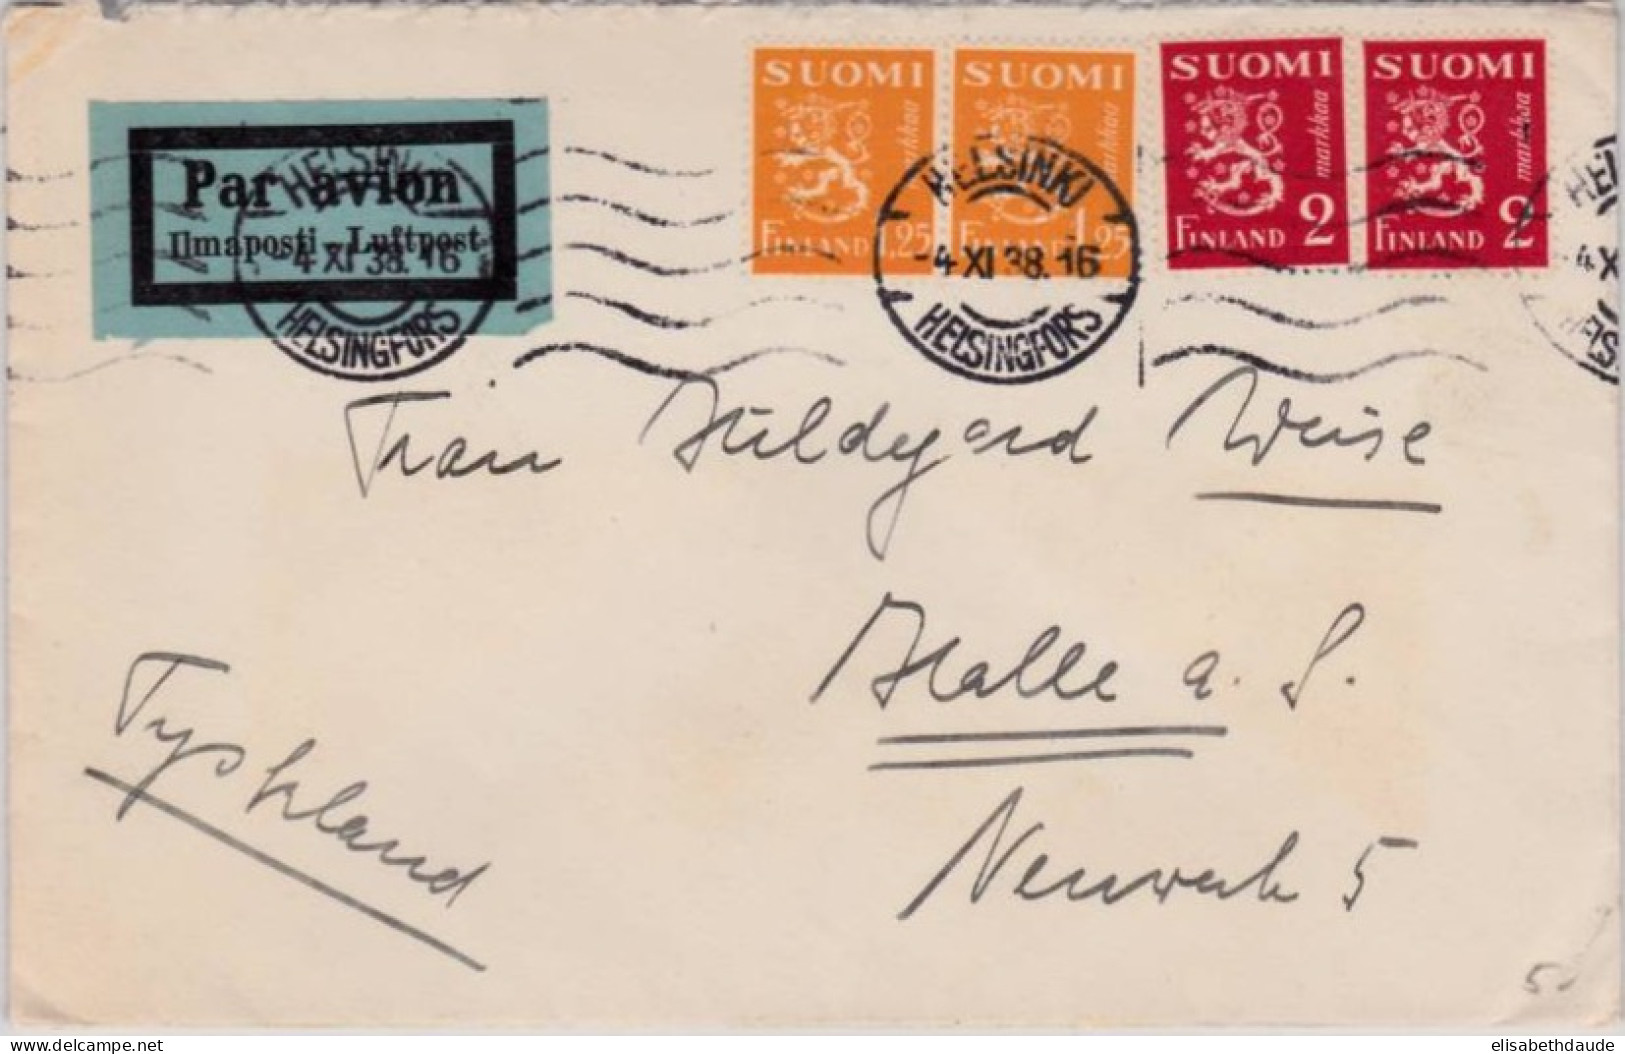 Par avion
Ilmaposti - Luftpost
HELSINKI
-4 XI 38. 16
HELSINGFORS
SUOMI
markkaa
FINLAND 1,25
SUOMI
markkaa
FINLAND 1,25
SUOMI
markkaa
FINLAND 2
SUOMI
markkaa
FINLAND 2
HELSINKI
-4 XI 38. 16
HELSINGFORS
HEL
4 X
HELS
Frau Hildegard Weise
Halle a. S.
Neuwerk 5
Tyskland
5
elisabethdaude